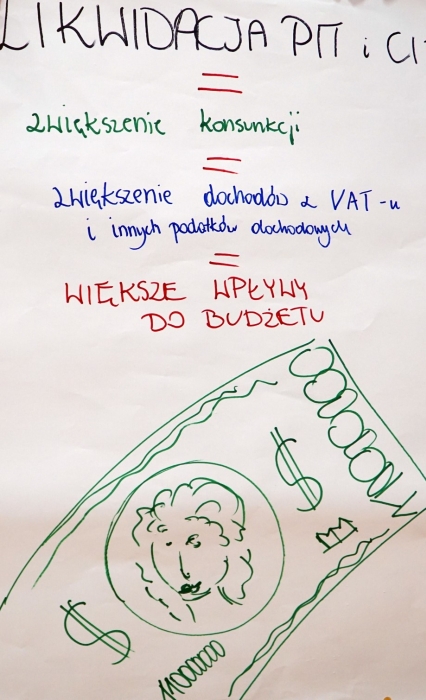 LIKWIDACJA PIT i CI
=
zwiększenie konsunkcji
=
zwiększenie dochodów z VAT-u
i innych podatków dochodowych
=
WIĘKSZE WPŁYWY
DO BUDŻETU
$
$